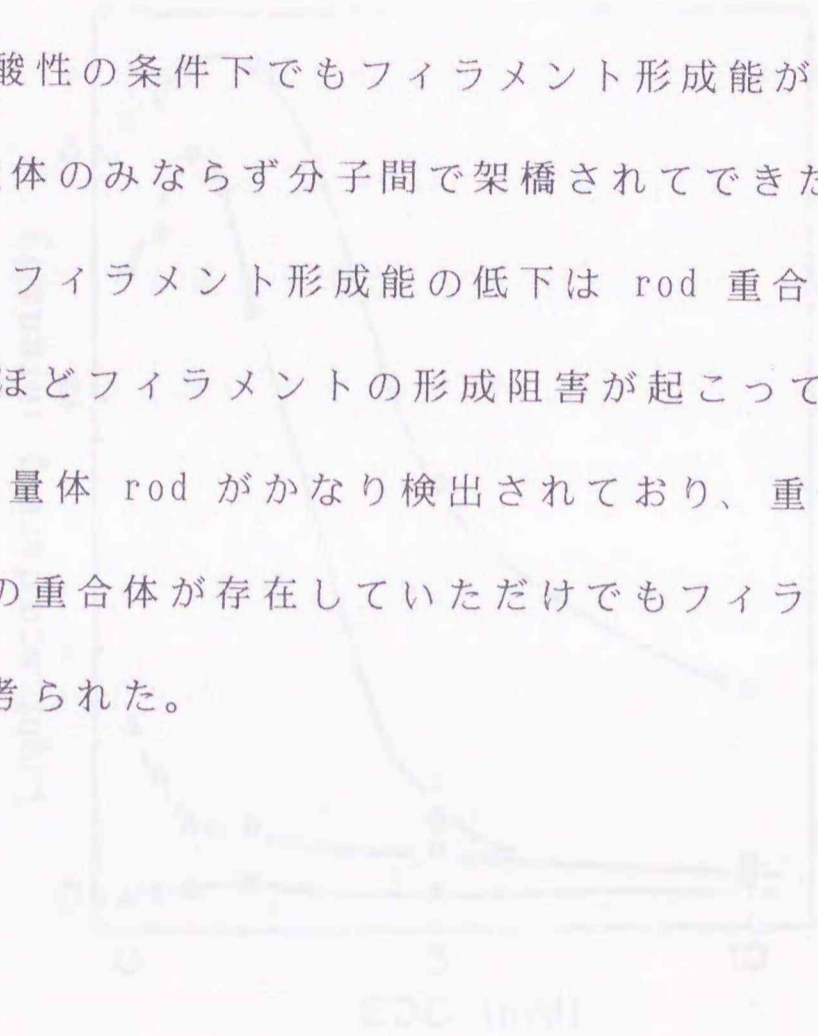 酸性の条件下でもフィラメント形成能が
体のみならず分子間で架橋されてできた
フィラメント形成能の低下は rod 重合
ほどフィラメントの形成阻害が起こって
量体 rod がかなり検出されており、重
の重合体が存在していただけでもフィラ
考られた。